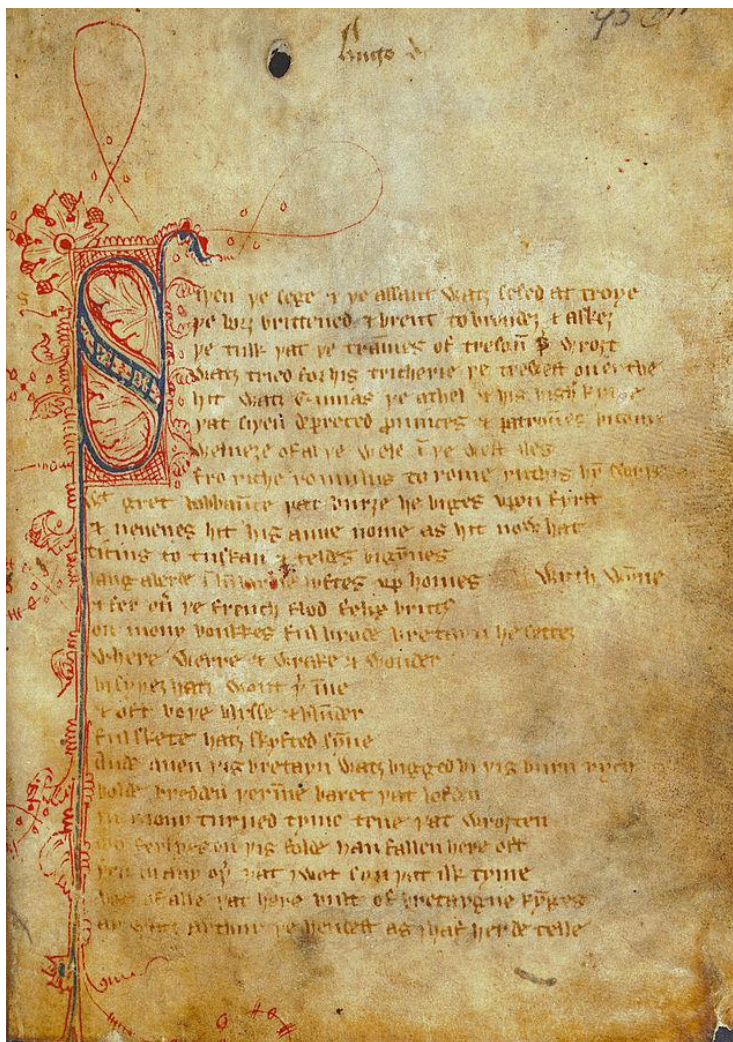 Hugo de
Siþen þe sege & þe assaut watz sesed at troye
þe borȝ brittened & brent to brondeȝ & askez
þe tulk þat þe trammes of tresoū þ̉ wroȝt
watz tried for his tricherie þe trewest on erthe
hit watz Ennias þe athel & his highe kynde
þat siþen depreced ꝓuinces & patroūes bicome
welneȝe of al þe wele ī þe west iles
fro riche romulus to rome ricchis hȳ swyþe
gret bobbaūce þat burȝe he biges vpon fyrst
& neuenes hit his aune nome as hit now hat
ticius to tuskan & teldes bigȳnes
langaberde ī lyftes vp homes wyth wȳne
& fer oủ þe french flod felix brutus
on mony bonkkes ful brode bretayn he settez
where werre & wrake & wonder
bi syþez hatz wont þ̉ īne
& oft boþe blysse & blunder
ful skete hatz skyfted sȳne
Ande quen þis bretayn watz bigged bi þis burn rych
bolde bredden þerīne baret þat lofden
in mony turned tyme tene þat wroȝten
mo ferlyes on þis folde han fallen here oft
þen in any oþ̉ þat I wot syn þat ilk tyme
bot of alle þat here bult of bretaygne kȳges
ay watz arthur þe hendest as I haf herde telle